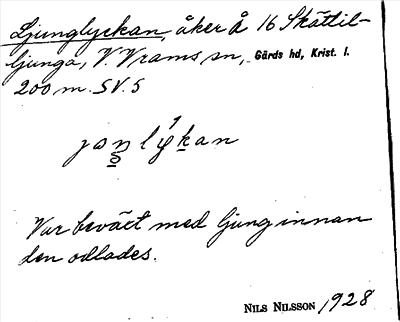 Ljunglyckan, åker å 16 Skättil-
ljunga, V. Vrams sn, Gärds hd, Krist. l.
200 m. SV. S
Var beväxt med ljung innan
den odlades.
NILS NILSSON 1928